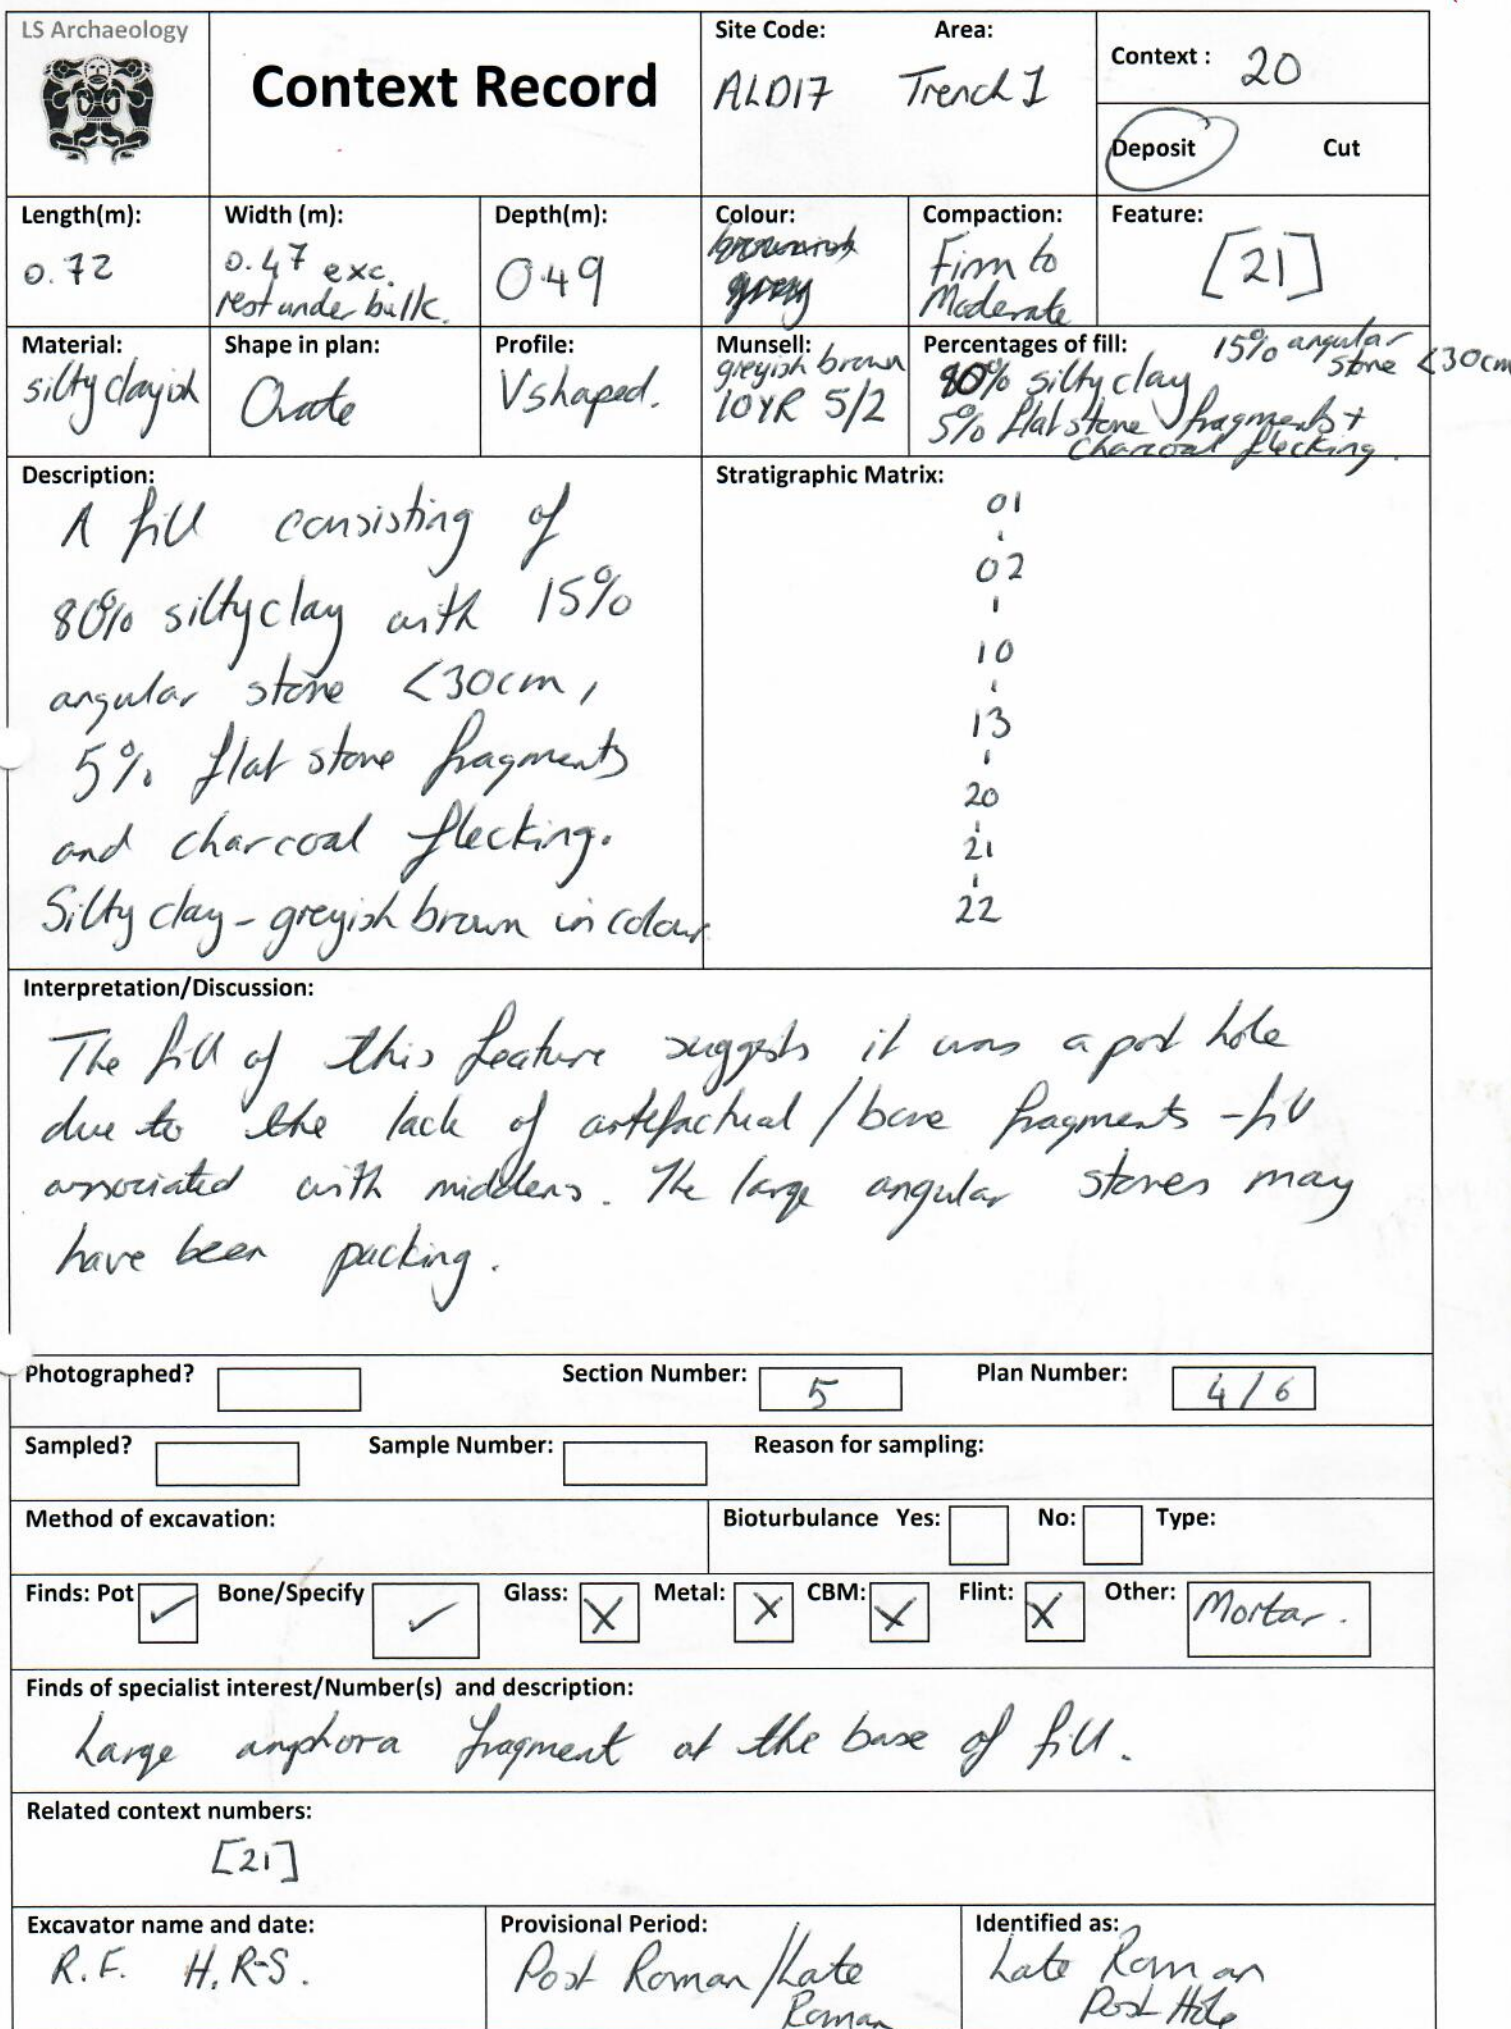 LS Archaeology
Context Record
Site Code: Area:
ALD17 Trench 1
Context : 20
Deposit Cut
Length(m):
0.72
Width (m):
0.47 exc.
rest under bulk.
Depth(m):
0.49
Colour:
brownish
grey
Compaction:
Firm to
Moderate
Feature:
[21]
Material:
silty clayish
Shape in plan:
Ovate
Profile:
V shaped.
Munsell:
greyish brown
10YR 5/2
Percentages of fill: 15% angular
stone <30cm
80% silty clay
5% flat stone fragments +
charcoal flecking.
Description:
A fill consisting of
80% silty clay with 15%
angular stone <30cm,
5% flat stone fragments
and charcoal flecking.
Silty clay - greyish brown in colour
Stratigraphic Matrix:
01
02
10
13
20
21
22
Interpretation/Discussion:
The fill of this feature suggests it was a post hole
due to the lack of artefactual / bone fragments - fill
associated with middens. The large angular stones may
have been packing.
Photographed? Section Number: 5 Plan Number: 4/6
Sampled? Sample Number: Reason for sampling:
Method of excavation: Bioturbulance Yes: No: Type:
Finds: Pot ✓ Bone/Specify ✓ Glass: X Metal: X CBM: X Flint: X Other: Mortar.
Finds of specialist interest/Number(s) and description:
Large amphora fragment at the base of fill.
Related context numbers:
[21]
Excavator name and date:
R.F. H.R-S.
Provisional Period:
Post Roman / Late
Roman
Identified as:
Late Roman
Post Hole